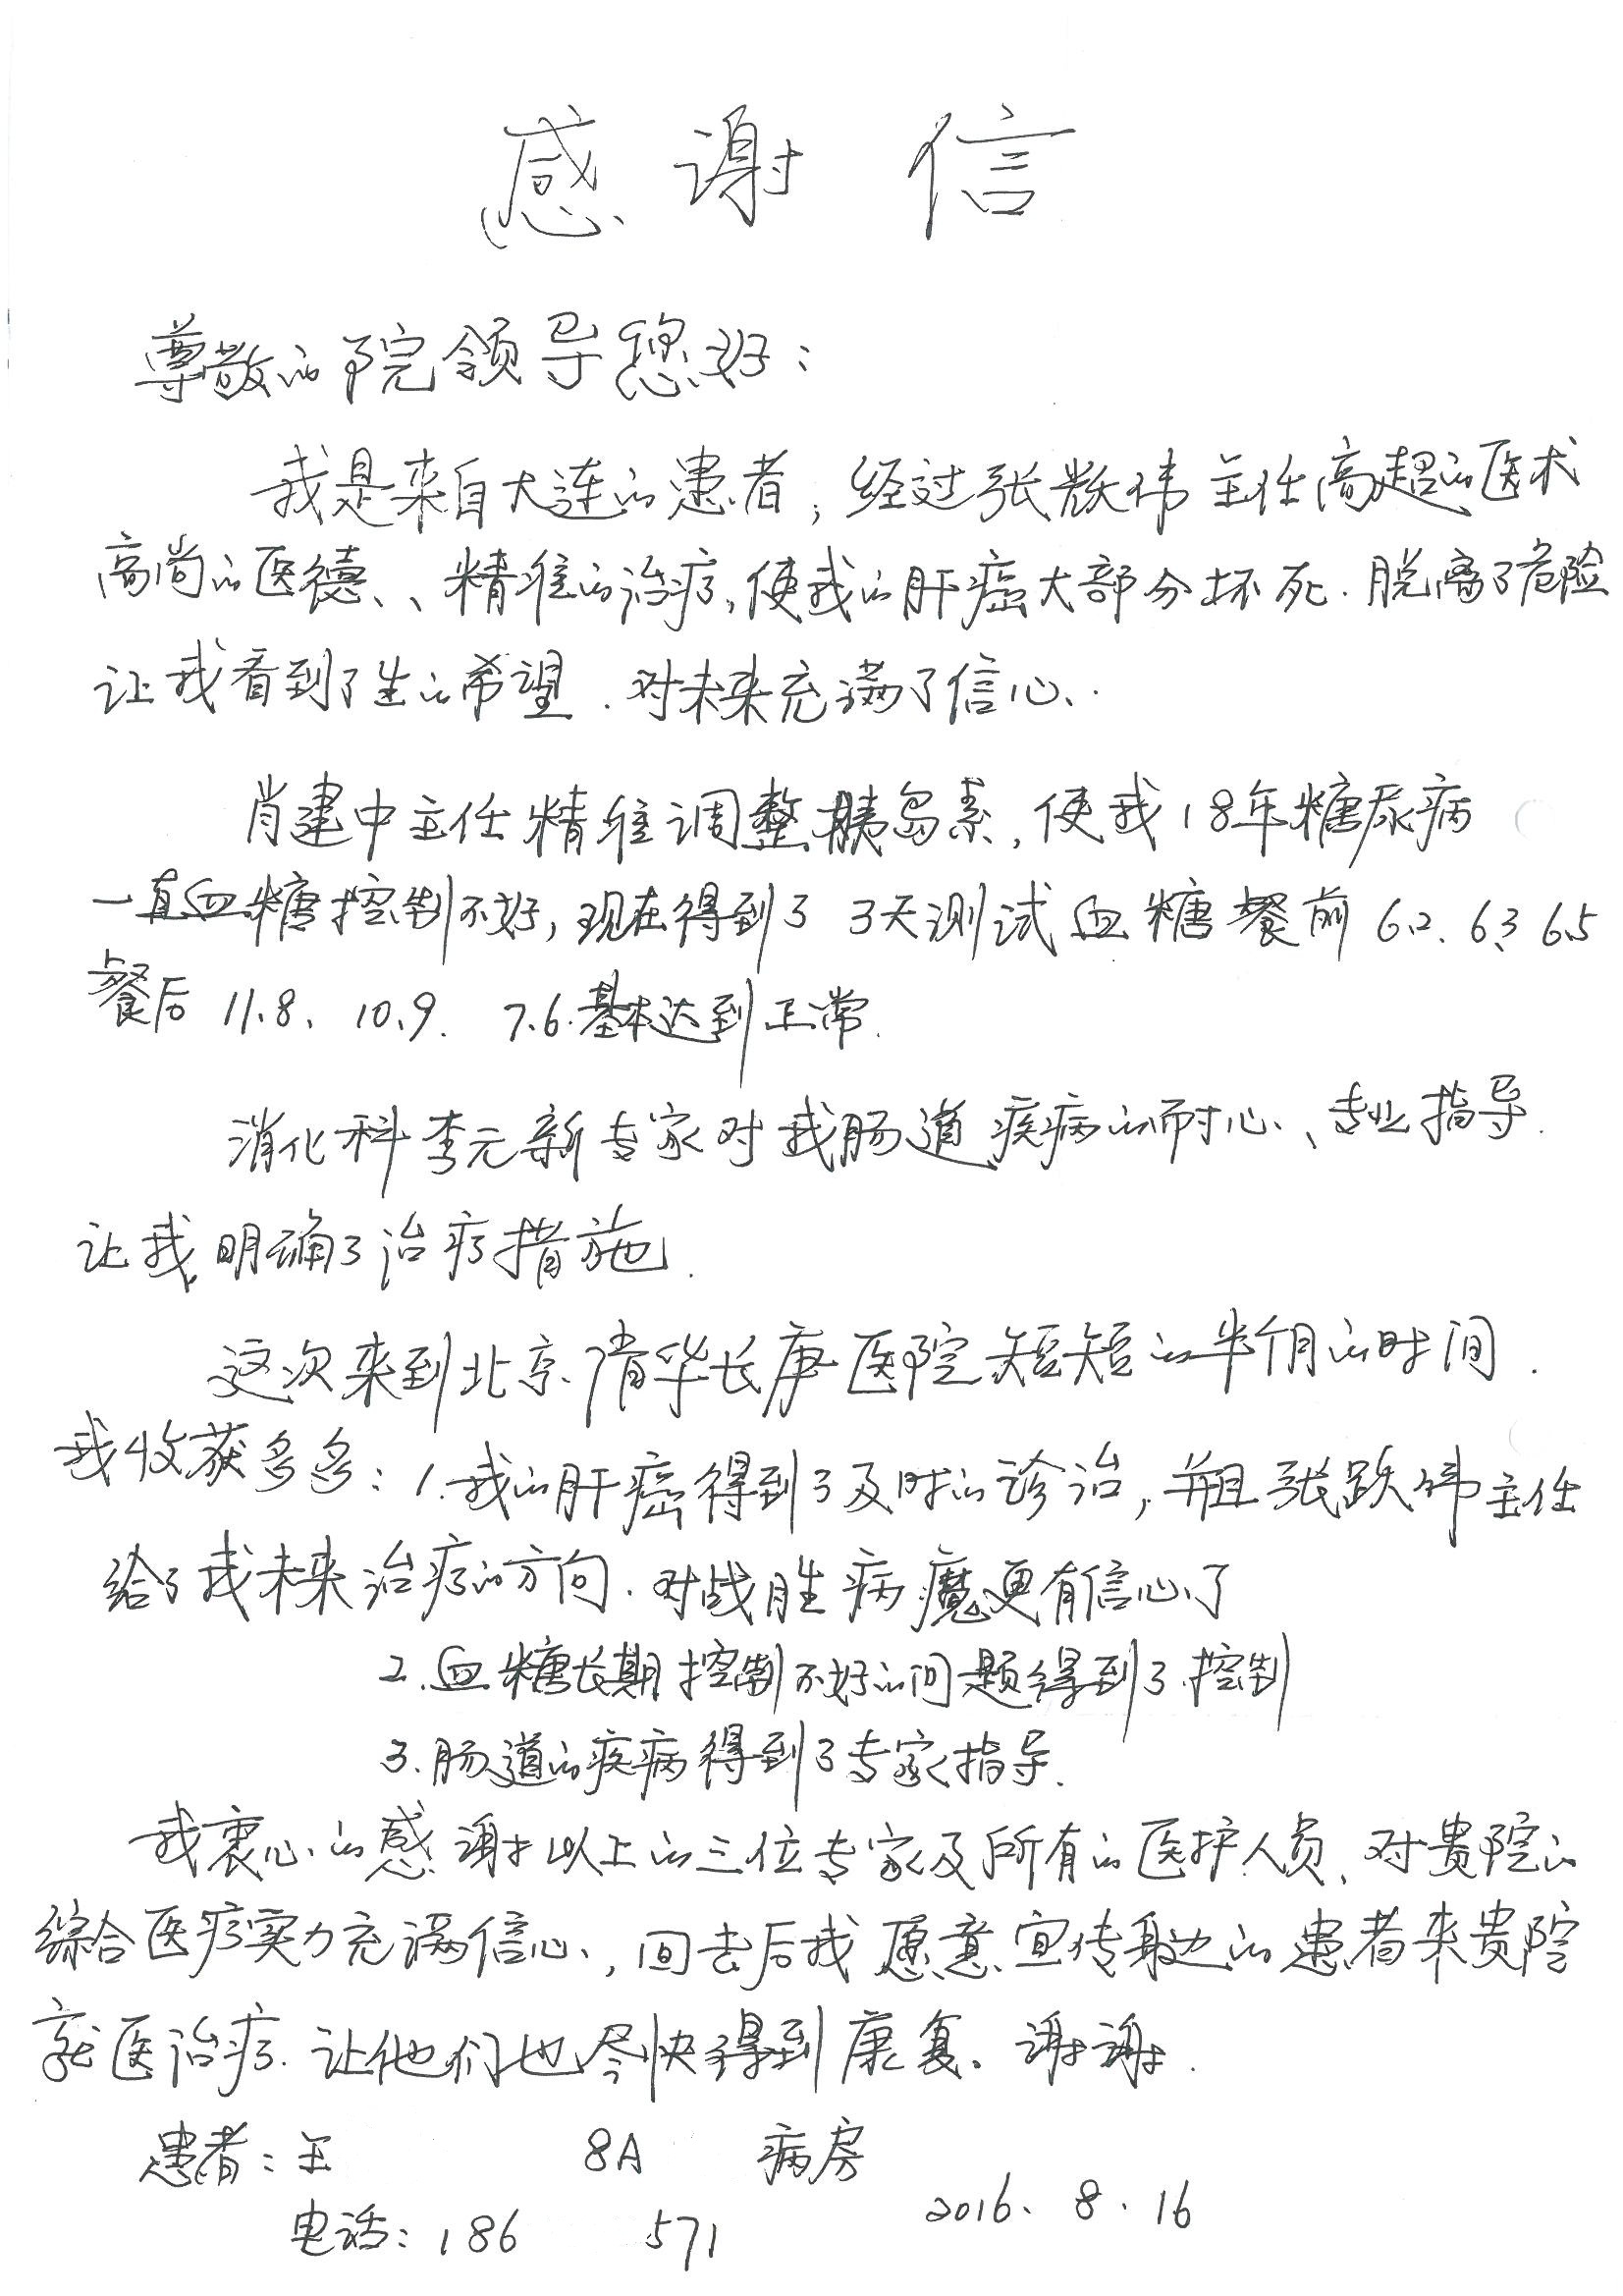 感谢信
尊敬的院领导您好：
我是来自大连的患者，经过张跃伟主任高超的医术
高尚的医德、、精准的治疗，使我的肝癌大部分坏死.脱离了危险
让我看到了生的希望.对未来充满了信心..
肖建中主任精准调整胰岛素，使我18年糖尿病
一直血糖控制不好，现在得到了3天测试血糖餐前6.2、6.3 6.5
餐后11.8、10.9. 7.6.基本达到正常.
消化科李元新专家对我肠道疾病的耐心、专业指导.
让我明确了治疗措施.
这次来到北京清华长庚医院短短的半个月的时间.
我收获多多：1.我的肝癌得到了及时的诊治，并且张跃伟主任
给了我未来治疗的方向.对战胜病魔更有信心了
2.血糖长期控制不好的问题得到了控制
3.肠道的疾病得到了专家指导.
我衷心的感谢以上的三位专家及所有的医护人员、对贵院的
综合医疗实力充满信心，回去后我愿意宣传身边的患者来贵院
就医治疗.让他们也尽快得到康复。谢谢.
患者：王 8A 病房
电话：186 571 2016.8.16